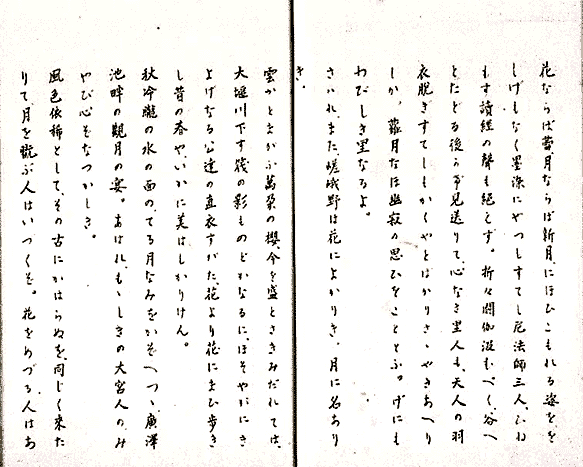 花ならば蕾、月ならば新月、にほひこもれる姿をを
しげもなく墨染にやつしすてし尼法師三人、ひね
もす讀經の聲も絶えず。折々閼伽汲むべく、谷へ
とたどる後ら影見送りて、心なき里人も、天人の羽
衣脱ぎすてしもかくやとばかりさゝやきあへり
しか。蘿月なほ幽寂の思ひをこととふ。げにも
わびしき里なるよ。
さハれ、また、嵯峨野は花によかりき、月に名あり
き。
雲かとまがふ萬朶の櫻、今を盛とさきみだれては、
大堰川下す筏の影ものどかなるに、ほそやかにき
よげなる公達の直衣すがた、花より花にまひ歩き
し昔の春や、いかに美はしかりけん。
秋冷朧の水の面の、てる月なみをかぞへつゝ、廣澤
池畔の觀月の宴。あはれ、もゝしきの大宮人のみ
やび心ぞなつかしき。
風色依稀として、その古にかはらぬを、同じく來た
りて月を翫ぶ人はいづくぞ。花をめづる人はあ